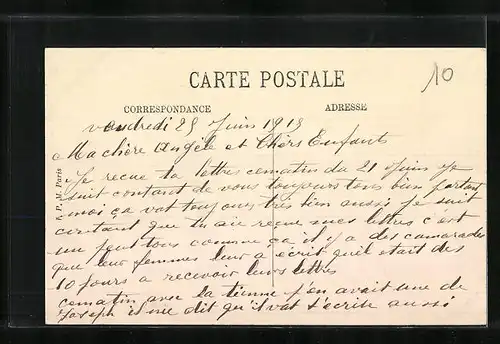 CARTE POSTALE
10
CORRESPONDANCE
ADRESSE
vendredi 25 Juin 1915
Ma chère Angèle et Chèrs Enfants
Je recue ta lettre cematin du 21 Juin Je
suit contant de vous toujours tous bien portant
moi ça vat toujours très bien aussi Je suit
contant que tu aie reçue mes lettres c'est
un peut tous comme ça il y a des camarades
que leur femmes leur a écrit quil etait des
10 jours a recevoir leurs lettres
cematin avec la tienne j'en avait une de
Joseph il me dit qu'il vat s'écrite aussi
A. P. M. Paris